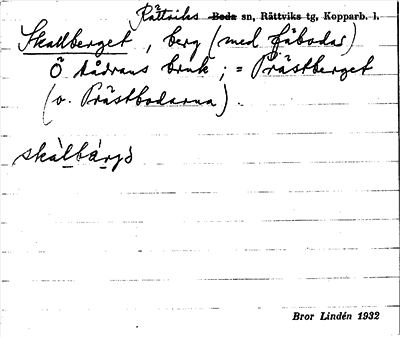 Rättviks Boda sn, Rättviks tg, Kopparb. l.
Skallberget, berg (med fäbodar)
Ö Dådrans bruk; = Prästberget
(o. Prästbodarna).
skàlbárjò
Bror Lindén 1932